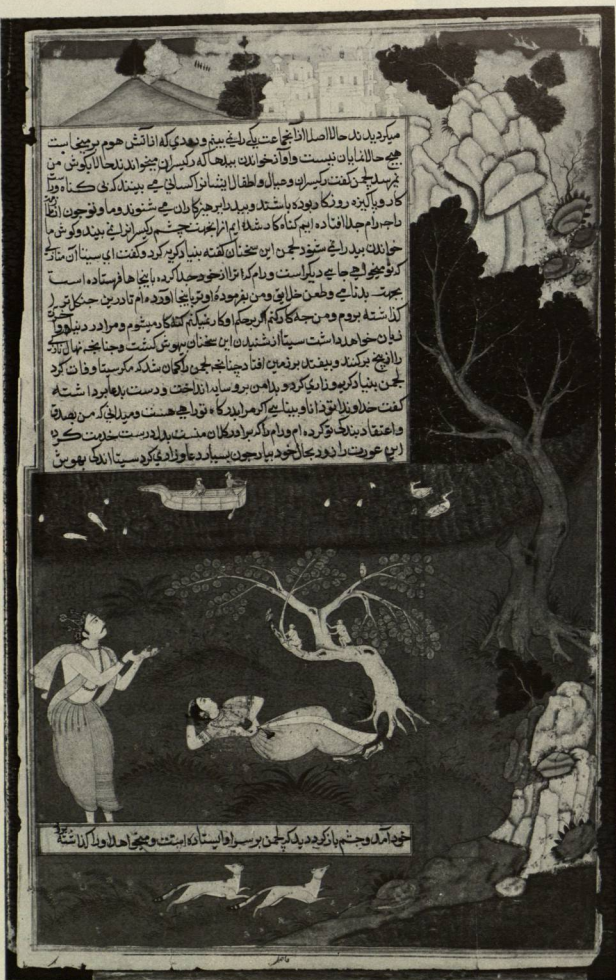 میکردیدند حالا اصلا ازان جماعت یکی رانمی بینم و رودی که اناتش هوم برمیخاست
هیچ حالا نمایان نیست و آواز خواندن بیدها که رکیسران میخواندند حالا بکوش من
نمیرسد لچمن کفت رکیسران و عیال و اطفال ایشانرا کسانی می بینند که بی کناه و
کار و پاکیزه روزکار بوده باشند و بید را پرهیزکاران می شنوند و ما و تو چون از
راجه رام جدا افتاده ایم کناه کار شده ایم ازین جهت چشم رکیسرانرا نمی بیند و کوش ما
خواندن بید را نمی شنود لچمن این سخنان کفته بنیاد کریه کرد و کفت ای سیتا آن
که تو میخواهی جای دیکر است و رام که ترا از خود جدا کرده باینجا فرستاده است
بجهت بدنامی و طعن خلایق و من بفرموده او ترا باینجا آورده ام تا درین جنکل ترا
کذاشته بروم و من چه کار کنم اکر بحکم او کار نمیکنم کنه کار میشوم و مرا در دنیا و
زیان خواهد داشت سیتا از شنیدن این سخنان بیهوش کشت و چنانچه نهال
را از بیخ برکنند و بیفتد بر زمین افتاد چنانچه لچمن را کمان شد که مکر سیتا وفات کرد
لچمن بنیاد کریه و زاری کرد و بدامن بر وسایه انداخت و دست بدعا برداشته
کفت خداوندا تو دانا و بینایی اکر مرا بدرکاه تو راهی هست و میدانی که من بصدق
و اعتقاد بندکی تو کرده ام و رام را که برادر کلان منست بدل درست خدمت کرده
این عورت را زود بحال خود بیار چون بسیار دعا و زاری کرد سیتا اندکی بهوش
خود آمد و چشم باز کرد دید که لچمن بر سر او ایستاده است و میخواهد او را کذاشته برود